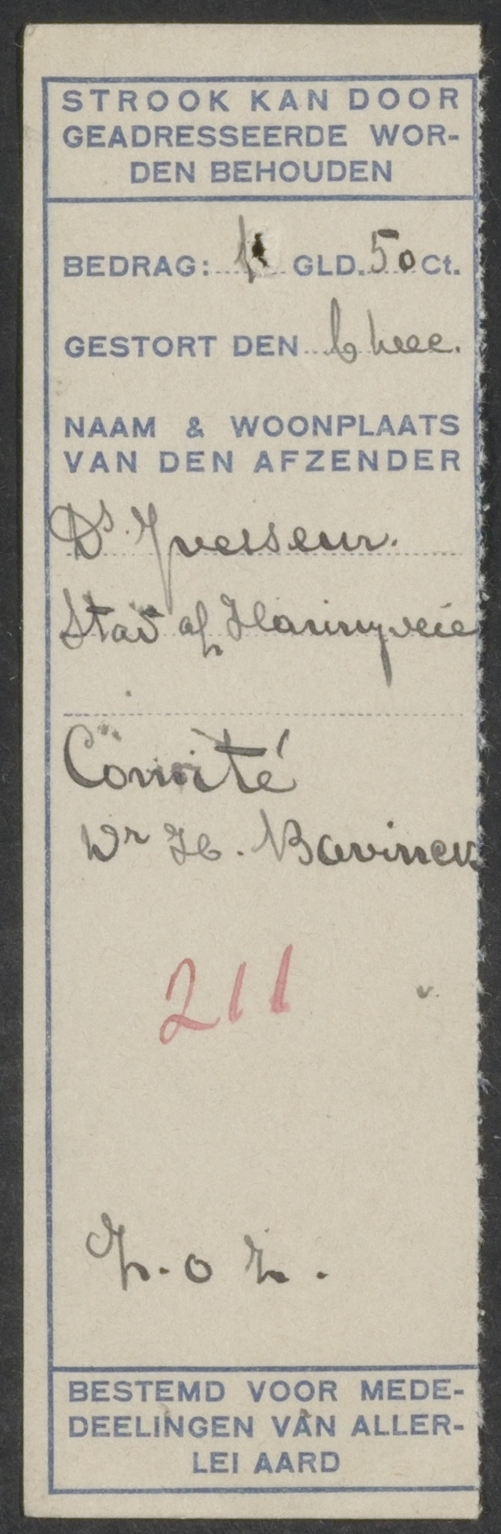 STROOK KAN DOOR
GEADRESSEERDE WOR-
DEN BEHOUDEN
BEDRAG: GLD. 50 Ct.
GESTORT DEN 6
NAAM & WOONPLAATS
VAN DEN AFZENDER
Ds.
Stad a/h Haringvliet
Comité
Dr H. Bavinck
211
z.o.z.
BESTEMD VOOR MEDE-
DEELINGEN VAN ALLER-
LEI AARD